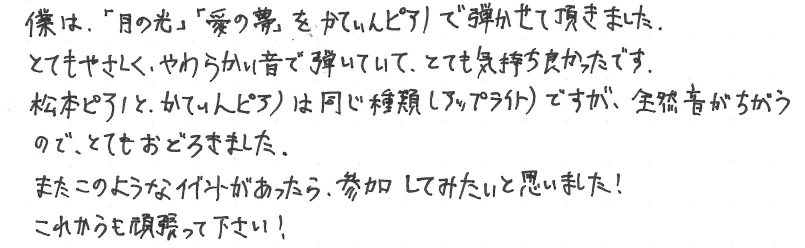 僕は、「月の光」「愛の夢」を かてぃんピアノで弾かせて頂きました.
とてもやさしく、やわらかい音で弾いていて、とても気持ち良かったです.
松本ピアノと、かてぃんピアノは同じ種類(アップライト)ですが、全然音がちがう
ので、とてもおどろきました.
またこのようなイベントがあったら、参加してみたいと思いました!
これからも頑張って下さい!